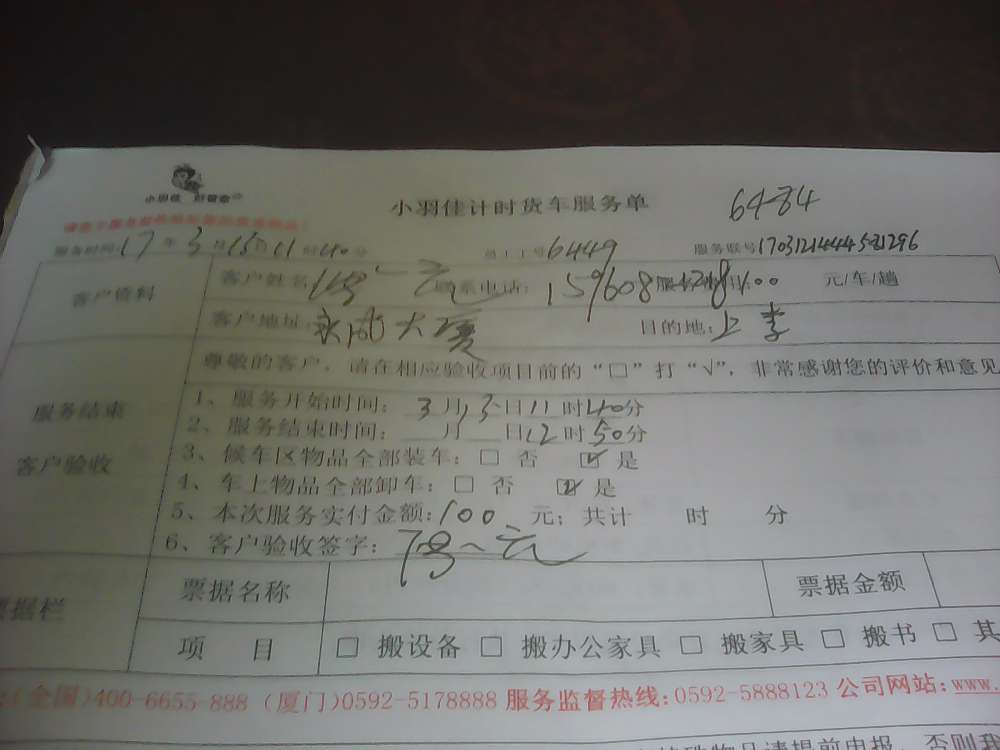 小羽佳 好管家
小羽佳计时货车服务单 6484
服务时间:17年3月15日11时40分 员工工号6449 服务账号170312144452296
客户资料
客户姓名: 联系电话: 159608 100 元/车/趟
客户地址: 大厦 目的地:上李
尊敬的客户,请在相应验收项目前的“□”打“√”,非常感谢您的评价和意见
服务结束
客户验收
1、服务开始时间:3月13日11时40分
2、服务结束时间: 月 日12时50分
3、候车区物品全部装车:□ 否 ☑ 是
4、车上物品全部卸车:□ 否 ☑ 是
5、本次服务实付金额:100 元;共计 时 分
6、客户验收签字:
票据栏
票据名称 票据金额
项 目 □ 搬设备 □ 搬办公家具 □ 搬家具 □ 搬书 □ 其
:(全国)400-6655-888 (厦门)0592-5178888 服务监督热线:0592-5888123 公司网站:www.
物品请提前申报,否则我